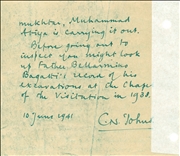 mukhtar, Muhammad
Atiya is carrying it out.
Before going out to
inspect you might look
up Father Bellarmino
Bagatti's record of his
excavations at the Chapel
of the Visitation in 1938.
10 June 1941
C.N. Johns